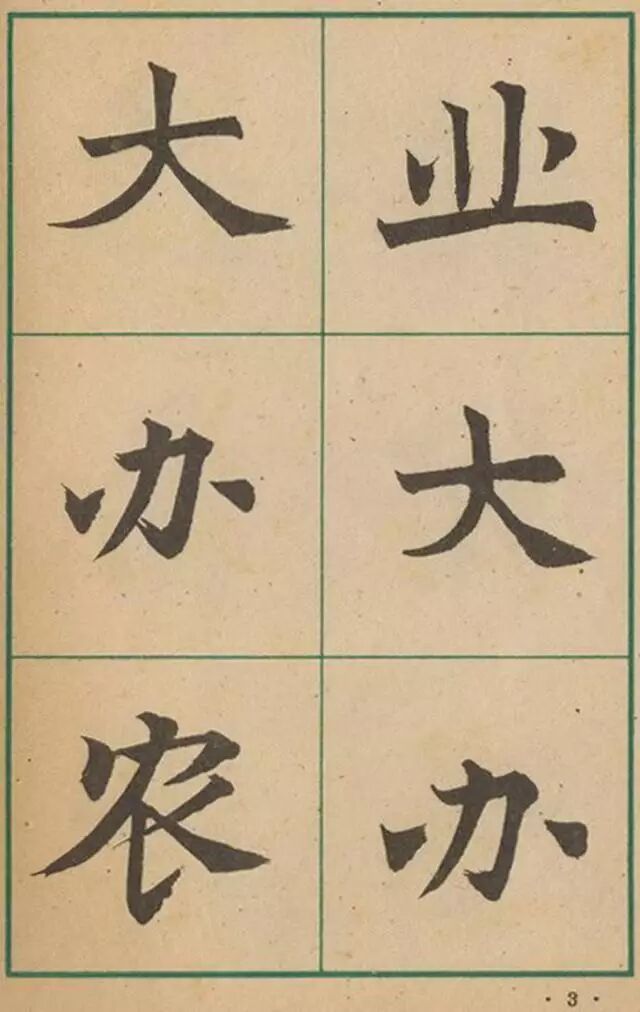 业大办
大办农
· 3 ·